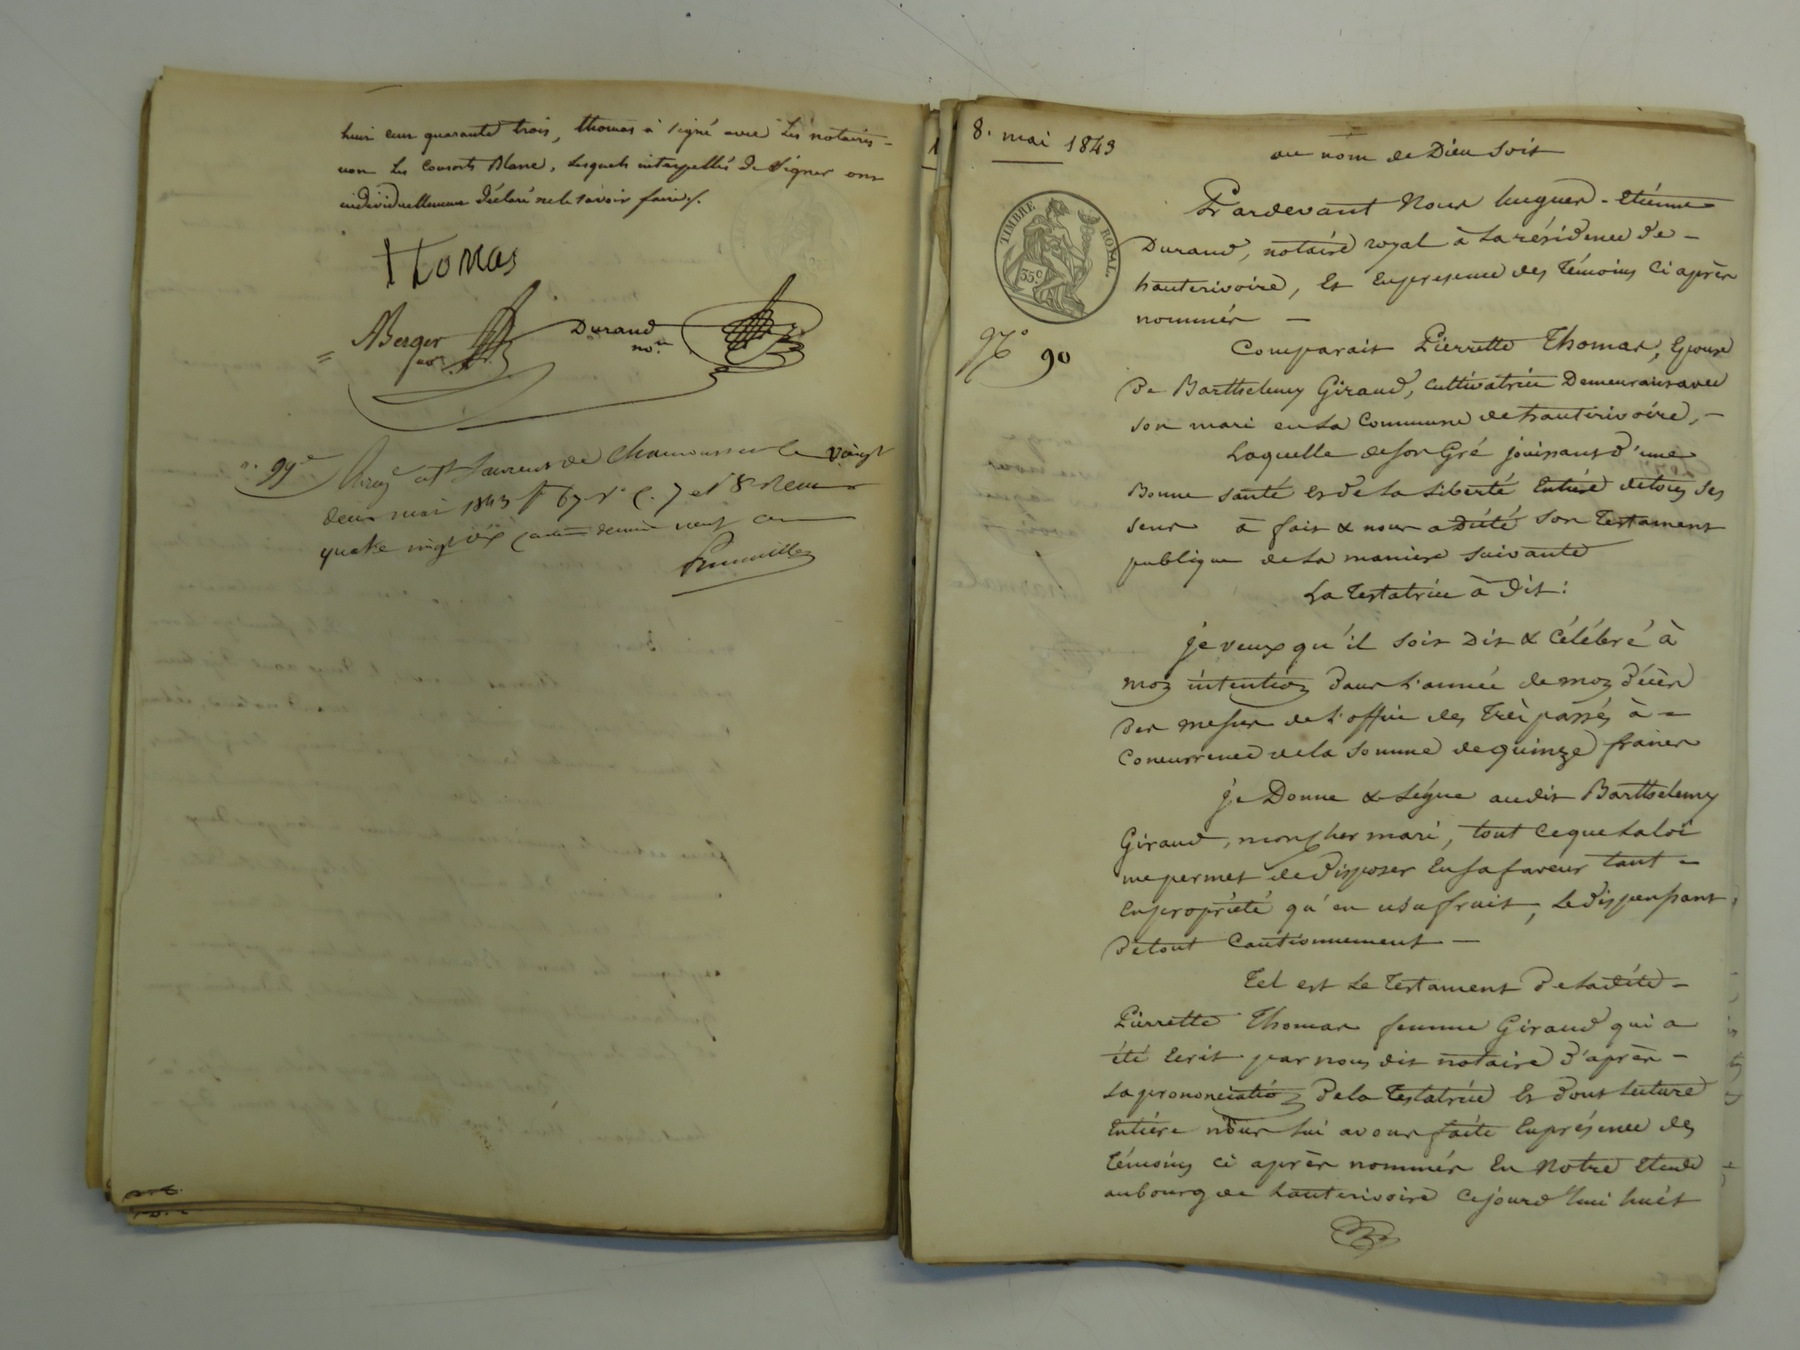 huit cent quarante trois, thomas à signé avec Les notaires -
non Les Consorts Blanc, Lesquels interpellés de Signer ont
individuellement déclaré ne le savoir faire/.
tHomas
Berger
Durand
nore
n. 99
St Laurent de Chamousset Le Vingt
deux mai 1843 fo 67 Vo C. 7 et 8 Reçu
quatre vingt
8. mai 1843
au nom de Dieu Soit
TIMBRE ROYAL
35c
Pardevant Nous hugues - Etiénne
Durand, notaire royal à La résidence de -
hauterivoire, Et En presence des Témoins Ci après
nommés -
90
Comparait Pierrette Thomas, Epouse
de Barthelemy Giraud, Cultivatrice Demeurant avec
son mari en La Commune de hauterivoire, -
Laquelle de son Gré jouissant d'une
Bonne santé et de La Liberté Entière de tous Ses
sens à fait & nous a dicté Son Testament
publique de La maniere Suivante
La Testatrice à dit :
je veux qu'il soit Dit & Célébré à
mon intention dans L'année de mon décès
des messes de L'office des Trépassés à -
Concurrence de la Somme de quinze francs
je Donne & Légue audit Barthelemy
Giraud, mon cher mari, tout Ce que La loi
me permet de disposer En sa faveur tant -
En propriété qu'en usufruit, Le dispensant
de tout Cautionnement -
Tel est Le Testament De Ladite -
Pierrette Thomas femme Giraud qui a
été Ecrit par nous dit notaire d'après -
La prononciation de la Testatrice Et dont Lecture
Entière nous Lui avons faite En présence des
Témoins Ci après nommés En Notre Etude
au bourg de hauterivoire Cejourd'hui huit